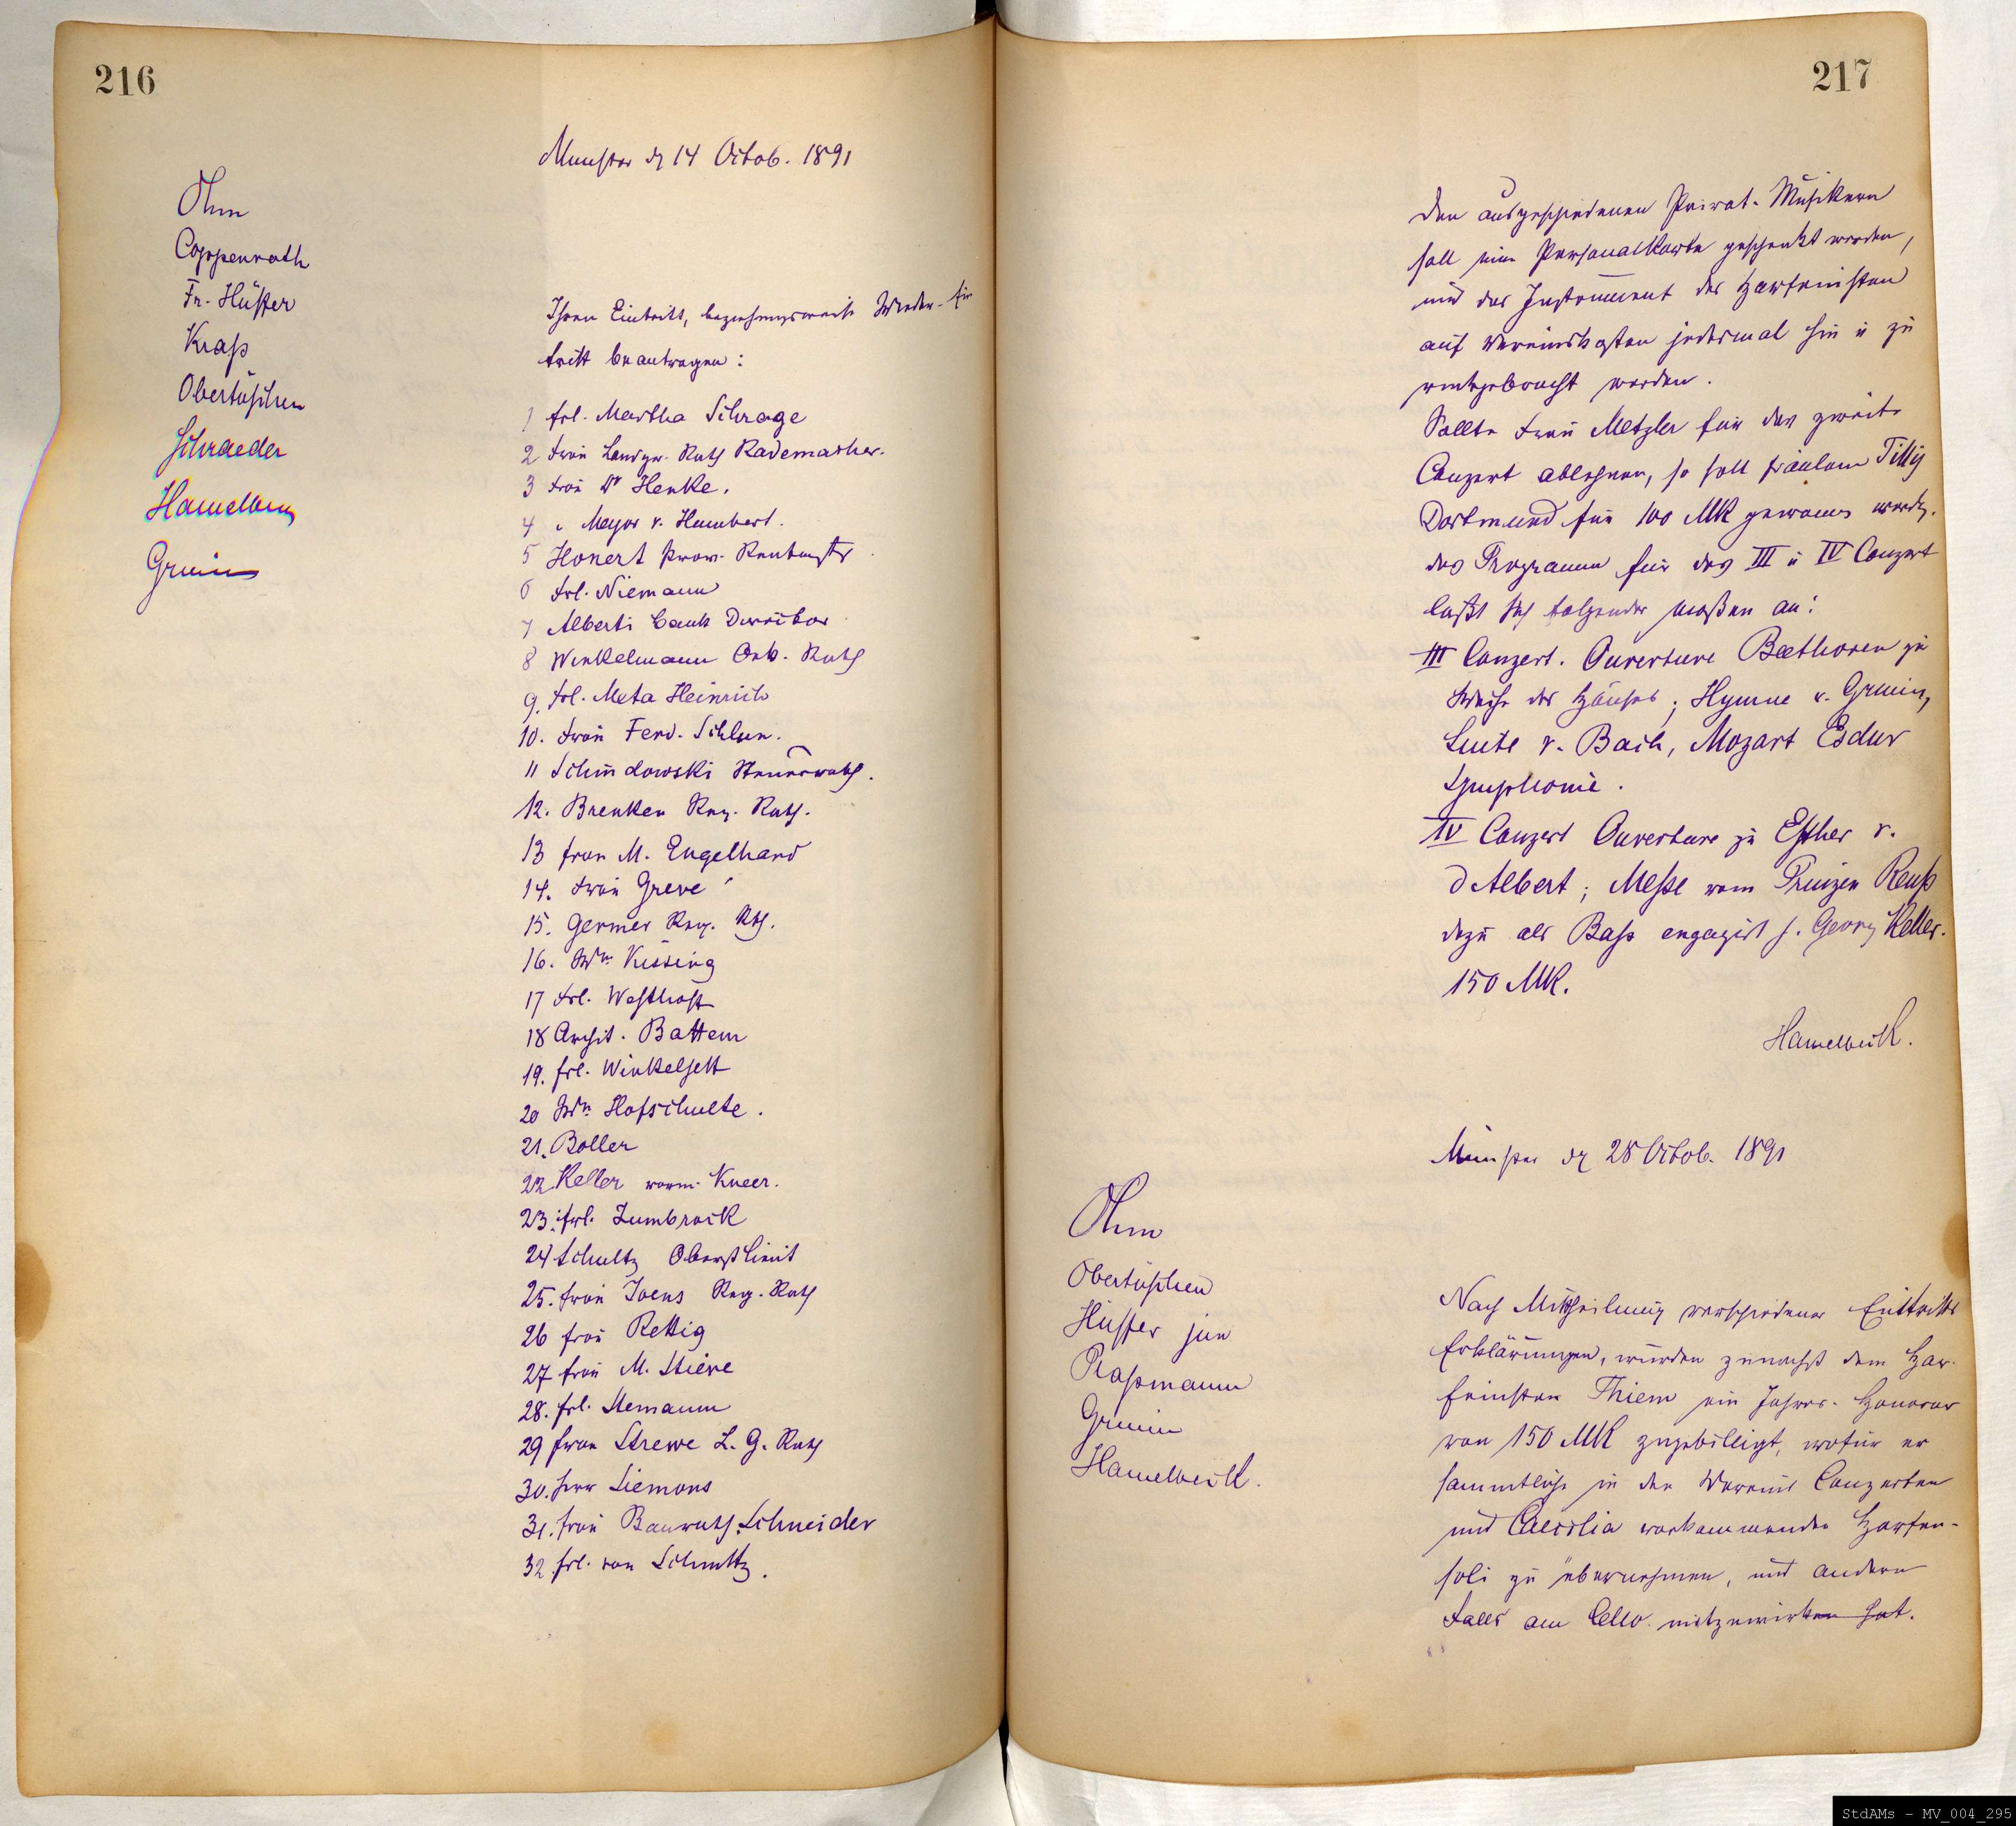 216
Münster dn 14 Octob. 1891
Ohm
Coppenrath
Fr. Hüffer
Krass
Obertüschen
Schraeder
Hamelbeck
Grimm
Ihren Eintritt, beziehungsweise Wieder-Ein
tritt beantragen:
1 Frl. Martha Schrage
2 Frau Landger. Rath Rademacher.
3 Frau Dr Henke.
4 " Major v. Humbert.
5 Honert Prov. Rentmstr
6 Frl. Niemann
7 Alberti Bank Director
8 Winkelmann Rath
9. Frl. Meta Heinrich
10. Frau Ferd. Schlun.
11 Schmdowski Steuerrath.
12. Brenken Reg. Rath.
13 Frau M. Engelhard
14. Frau Greve
15. Germer Reg. Rth.
16. Ww. Kissing
17 Frl. Westhoff
18 Archit. Battem
19. Frl. Winkelsett
20 Ww Hofschulte.
21. Boller
22 Keller vorm. Kneer.
23. Frl. Zumbrock
24 Schultz Oberstlieut
25. Frau Joens Reg. Rath
26 Frau Rettig
27 Frau M. Stieve
28. Frl. Stemann
29 Frau Strewe L. G. Rath
30. Herr Siemons
31. Frau Baurath Schneider
32 Frl. von Schmitz.
217
Den ausgeschiedenen Privat-Musikern
soll eine Personalkarte geschenkt werden,
und das Instrument des Harfenisten
auf Vereinskosten jedesmal hin u zu
rückgebracht werden.
Sollte Frau Metzler für das zweite
Conzert ablehnen, so soll Fräulein Tilly
Dortmund für 100 MK gewonnen werdn.
Das Programm für das III u IV Conzert
laßt sich folgender maßen an:
III Conzert. Ouverture Beethoven zu
Weihe des Hauses; Hymne v. Grimm,
Suite v. Bach, Mozart Esdur
Symphonie.
IV Conzert Ouverture zu Esther v.
d Albert; Messe vom Prinzen Reuß
dazu als Bass engagirt H. Georg Keller.
150 MK.
Hamelbeck.
Münster dn 28 Octob. 1891
Ohm
Obertüschen
Hüffer jun
Rassmann
Grimm
Hamelbeck.
Nach Mittheilung verschiedener Eintritts
Erklärungen, wurden zunächst dem Har-
fenisten Thiem ein Jahres-Honorar
von 150 MK zugebilligt, wofür er
sammtliche in den Vereins Conzerten
und Caecilia vorkommenden Harfen-
soli zu übernehmen, und andern
Falls am Cello mitzuwirken hat.
StdAMs - MV_004_295